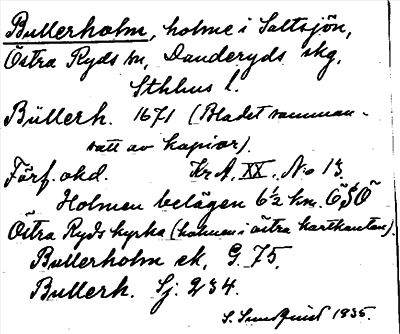 Bullerholm, holme i Saltsjön,
Östra Ryds sn, Danderyds skg,
Sthlms l.
Bullerh. 1671 (Bladet samman-
satt av kopior).
Förf. okd. KrA. XX. No 13.
Holmen belägen 6½ km. ÖSÖ
Östra Ryds kyrka (holmen i östra kartkanten).
Bullerholm ek. G. 75.
Bullerh. Sj. 234.
S. Sundquist 1935.